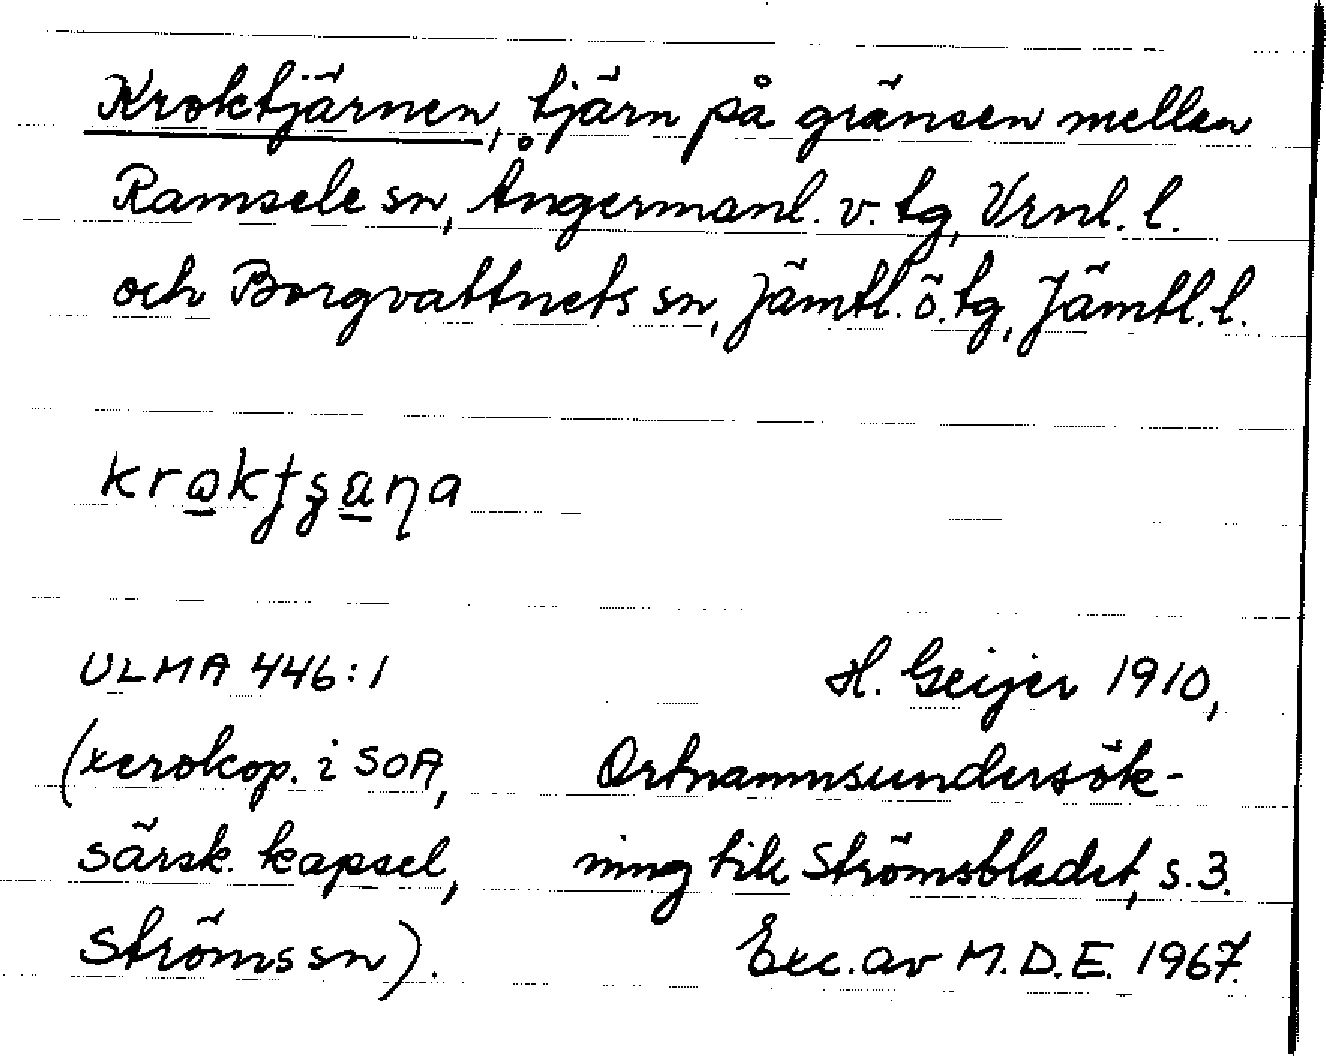 Kroktjärnen, tjärn på gränsen mellan
Ramsele sn, Ångermanl. v. tg, Vrnl. l.
och Borgvattnets sn, Jämtl. ö. tg, Jämtl. l.
ULMA 446:1 H. Geijer 1910,
(xerokop. i SOA, Ortnamnsundersök-
särsk. kapsel, ning till Strömsbladet, s. 3.
Ströms sn). Exc. av M.D.E. 1967.